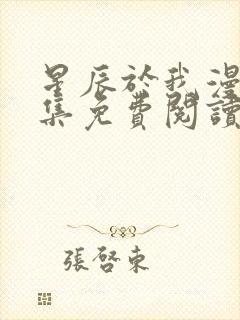 星辰於我漫
集免費閱讀
張啓東